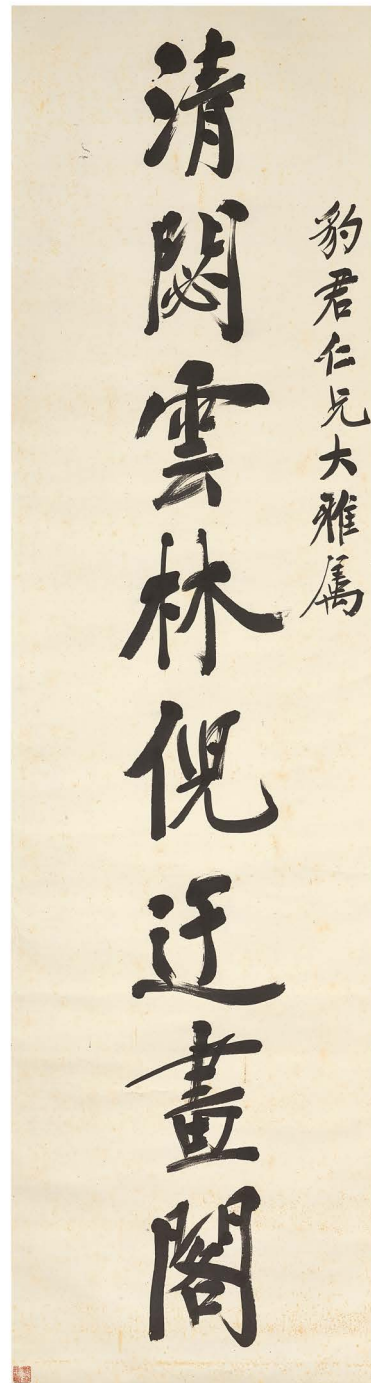 豹君仁兄大雅属
清閟雲林倪迂畫閣